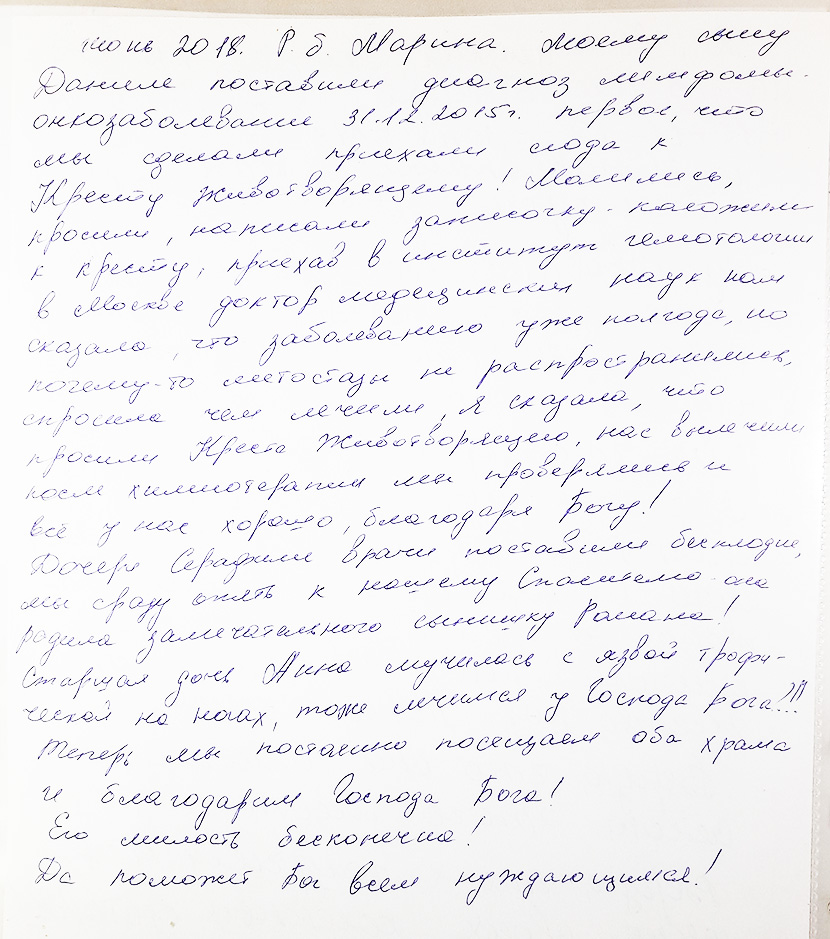 июнь 2018. Р. б. Марина. Моему сыну
Даниле поставили диагноз лимфомы-
онкозаболевание 31.12.2015г. первое, что
мы сделали приехали сюда к
Кресту Животворящему! Молились,
просили, написали записочку-
к кресту, приехав в институт гемотологии
в Москве доктор медецинских наук нам
сказала, что заболеванию уже полгода, но
почему-то метостазы не распространились,
спросила чем лечили, я сказала, что
просили Креста Животворящего, нас вылечили
после химиотерапии мы проверялись и
всё у нас хорошо, благодаря Богу!
Дочере Серафиме врачи поставили бесплодие,
мы сразу опять к нашему Спасителю она
родила замечательного сынишку Романа!
Старшая дочь Анна мучилась с язвой трофи-
ческой на ногах, тоже лечимся у Господа Бога!!!
Теперь мы постоянно посещаем оба храма
и благодарим Господа Бога!
Его милость бесконечна!
Да поможет Бог всем нуждающимся!